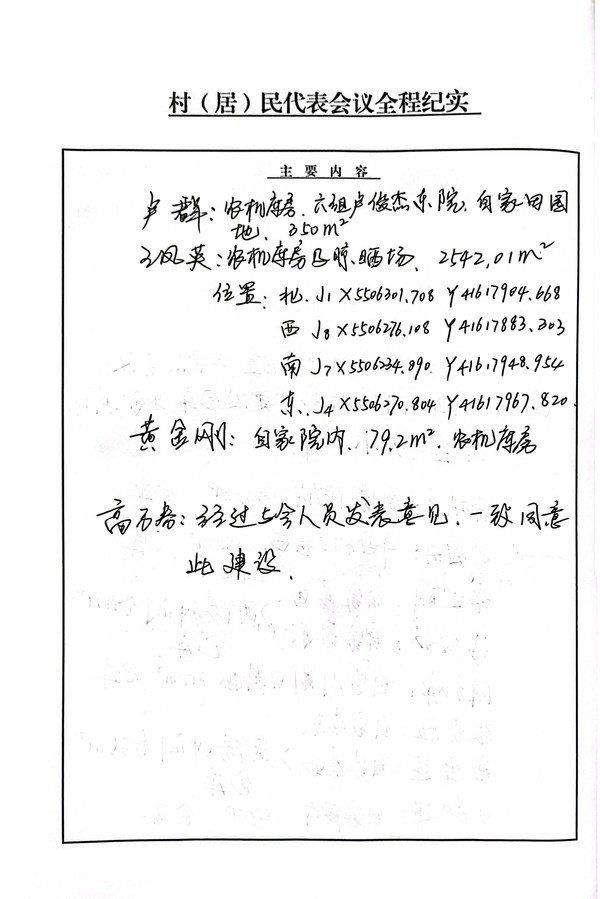 村（居）民代表会议全程纪实
主要内容
卢群：农机库房、六组卢俊杰东院、自家田园
地、350m²
王凤英：农机库房及晾晒场、2542.01m²
位置：北、J1 X5506301.708 Y41617904.668
西 J8 X5506276.108 Y41617883.203
南 J7 X5506234.890 Y41617948.954
东、J4 X5506270.804 Y41617967.820
黄金刚：自家院内、79.2m²、农机库房
经过与会人员发表意见、一致同意
此建设、